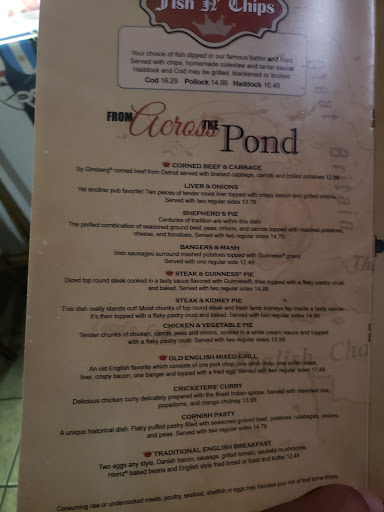 Fish N' Chips
Your choice of fish dipped in our famous batter and fried.
Served with chips, homemade coleslaw and tartar sauce
Haddock and Cod may be grilled, blackened or broiled
Cod 16.29 Pollock 14.99 Haddock 16.49
FROM Across THE Pond
Great Britain
CORNED BEEF & CABBAGE
'Sy Ginsberg' corned beef from Detroit served with braised cabbage, carrots and boiled potatoes 12.99
LIVER & ONIONS
Yet another pub favorite! Two pieces of tender moist liver topped with crispy bacon and grilled onions.
Served with two regular sides 13.79
SHEPHERD'S PIE
Centuries of tradition are within this dish!
The perfect combination of seasoned ground beef, peas, onions, and carrots topped with mashed potatoes,
cheese, and tomatoes. Served with two regular sides 14.79
BANGERS & MASH
Irish sausages surround mashed potatoes topped with Guinness® gravy
Served with one regular side 12.49
STEAK & GUINNESS® PIE
Diced top round steak cooked in a tasty sauce flavored with Guinness®, then topped with a flaky pastry crust
and baked. Served with two regular sides 14.99
STEAK & KIDNEY PIE
This dish really stands out! Moist chunks of top round steak and fresh lamb kidneys lay inside a tasty sauce.
It's then topped with a flaky pastry crust and baked. Served with two regular sides 14.99
CHICKEN & VEGETABLE PIE
Tender chunks of chicken, carrots, peas and onions, cooked in a white cream sauce and topped
with a flaky pastry crust. Served with two regular sides 13.99
OLD ENGLISH MIXED GRILL
An old English favorite which consists of one pork chop, one lamb chop, one small steak,
liver, crispy bacon, one banger and topped with a fried egg. Served with two regular sides 17.49
CRICKETERS' CURRY
Delicious chicken curry delicately prepared with the finest Indian spices. Served with steamed rice,
popadoms, and mango chutney 13.99
CORNISH PASTY
A unique historical dish. Flaky puffed pastry filled with seasoned ground beef, potatoes, rutabagas, onions,
and peas. Served with two regular sides 14.79
TRADITIONAL ENGLISH BREAKFAST
Two eggs any style, Danish bacon, sausage, grilled tomato, sautéed mushrooms,
Heinz® baked beans and English style fried bread or toast and butter 12.49
Consuming raw or undercooked meats, poultry, seafood, shellfish or eggs may increase your risk of food borne illness